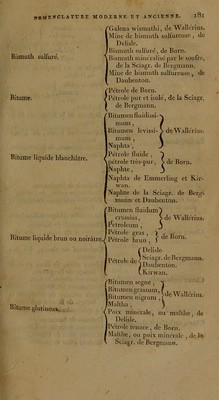 NOMENCLATURE MODERNE ET ANCIENNE. 181
Bismuth sulfuré.
Galena wismuthi, de Wallérius.
Mine de bismuth sulfureuse, de
Delisle.
Bismuth sulfuré, de Born.
Bismuth minéralisé par le soufre,
de la Sciagr. de Bergmann.
Mine de bismuth sulfureuse, de
Daubenton.
Bitume.
Pétrole de Born.
Pétrole pur et isolé, de la Sciagr.
de Bergmann.
Bitume liquide blanchâtre.
Bitumen fluidissi-
mum,
Bitumen levissi-
mum,
Naphta,
de Wallérius.
Pétrole fluide,
pétrole très-pur,
Naphte,
de Born.
Naphta de Emmerling et Kir-
wan.
Naphte de la Sciagr. de Berg-
mann et Daubenton.
Bitume liquide brun ou noirâtre.
Bitumen fluidum
crassius,
Petroleum,
de Wallérius.
Pétrole gras,
Pétrole brun,
de Born.
Pétrole de
Delisle.
Sciagr. de Bergmann.
Daubenton.
Kirwan.
Bitume glutineux.
Bitumen segne,
Bitumen crassum,
Bitumen nigrum,
Maltha,
de Wallérius.
Poix minérale, ou malthe, de
Delisle.
Pétrole tenace, de Born.
Malthe, ou poix minérale, de la
Sciagr. de Bergmann.